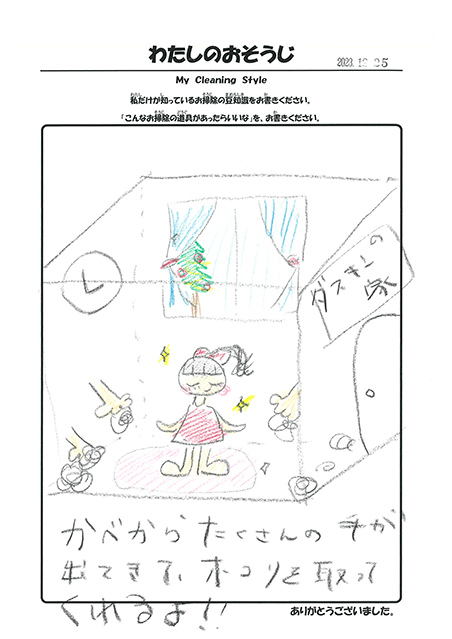 わたしのおそうじ
2023.12.25
My Cleaning Style
私だけが知っているお掃除の豆知識をお書きください。
「こんなお掃除の道具があったらいいな」を、お書きください。
ダスキンの
家
かべからたくさんの手が
出てきて、ホコリを取って
くれるよ!!
ありがとうございました。